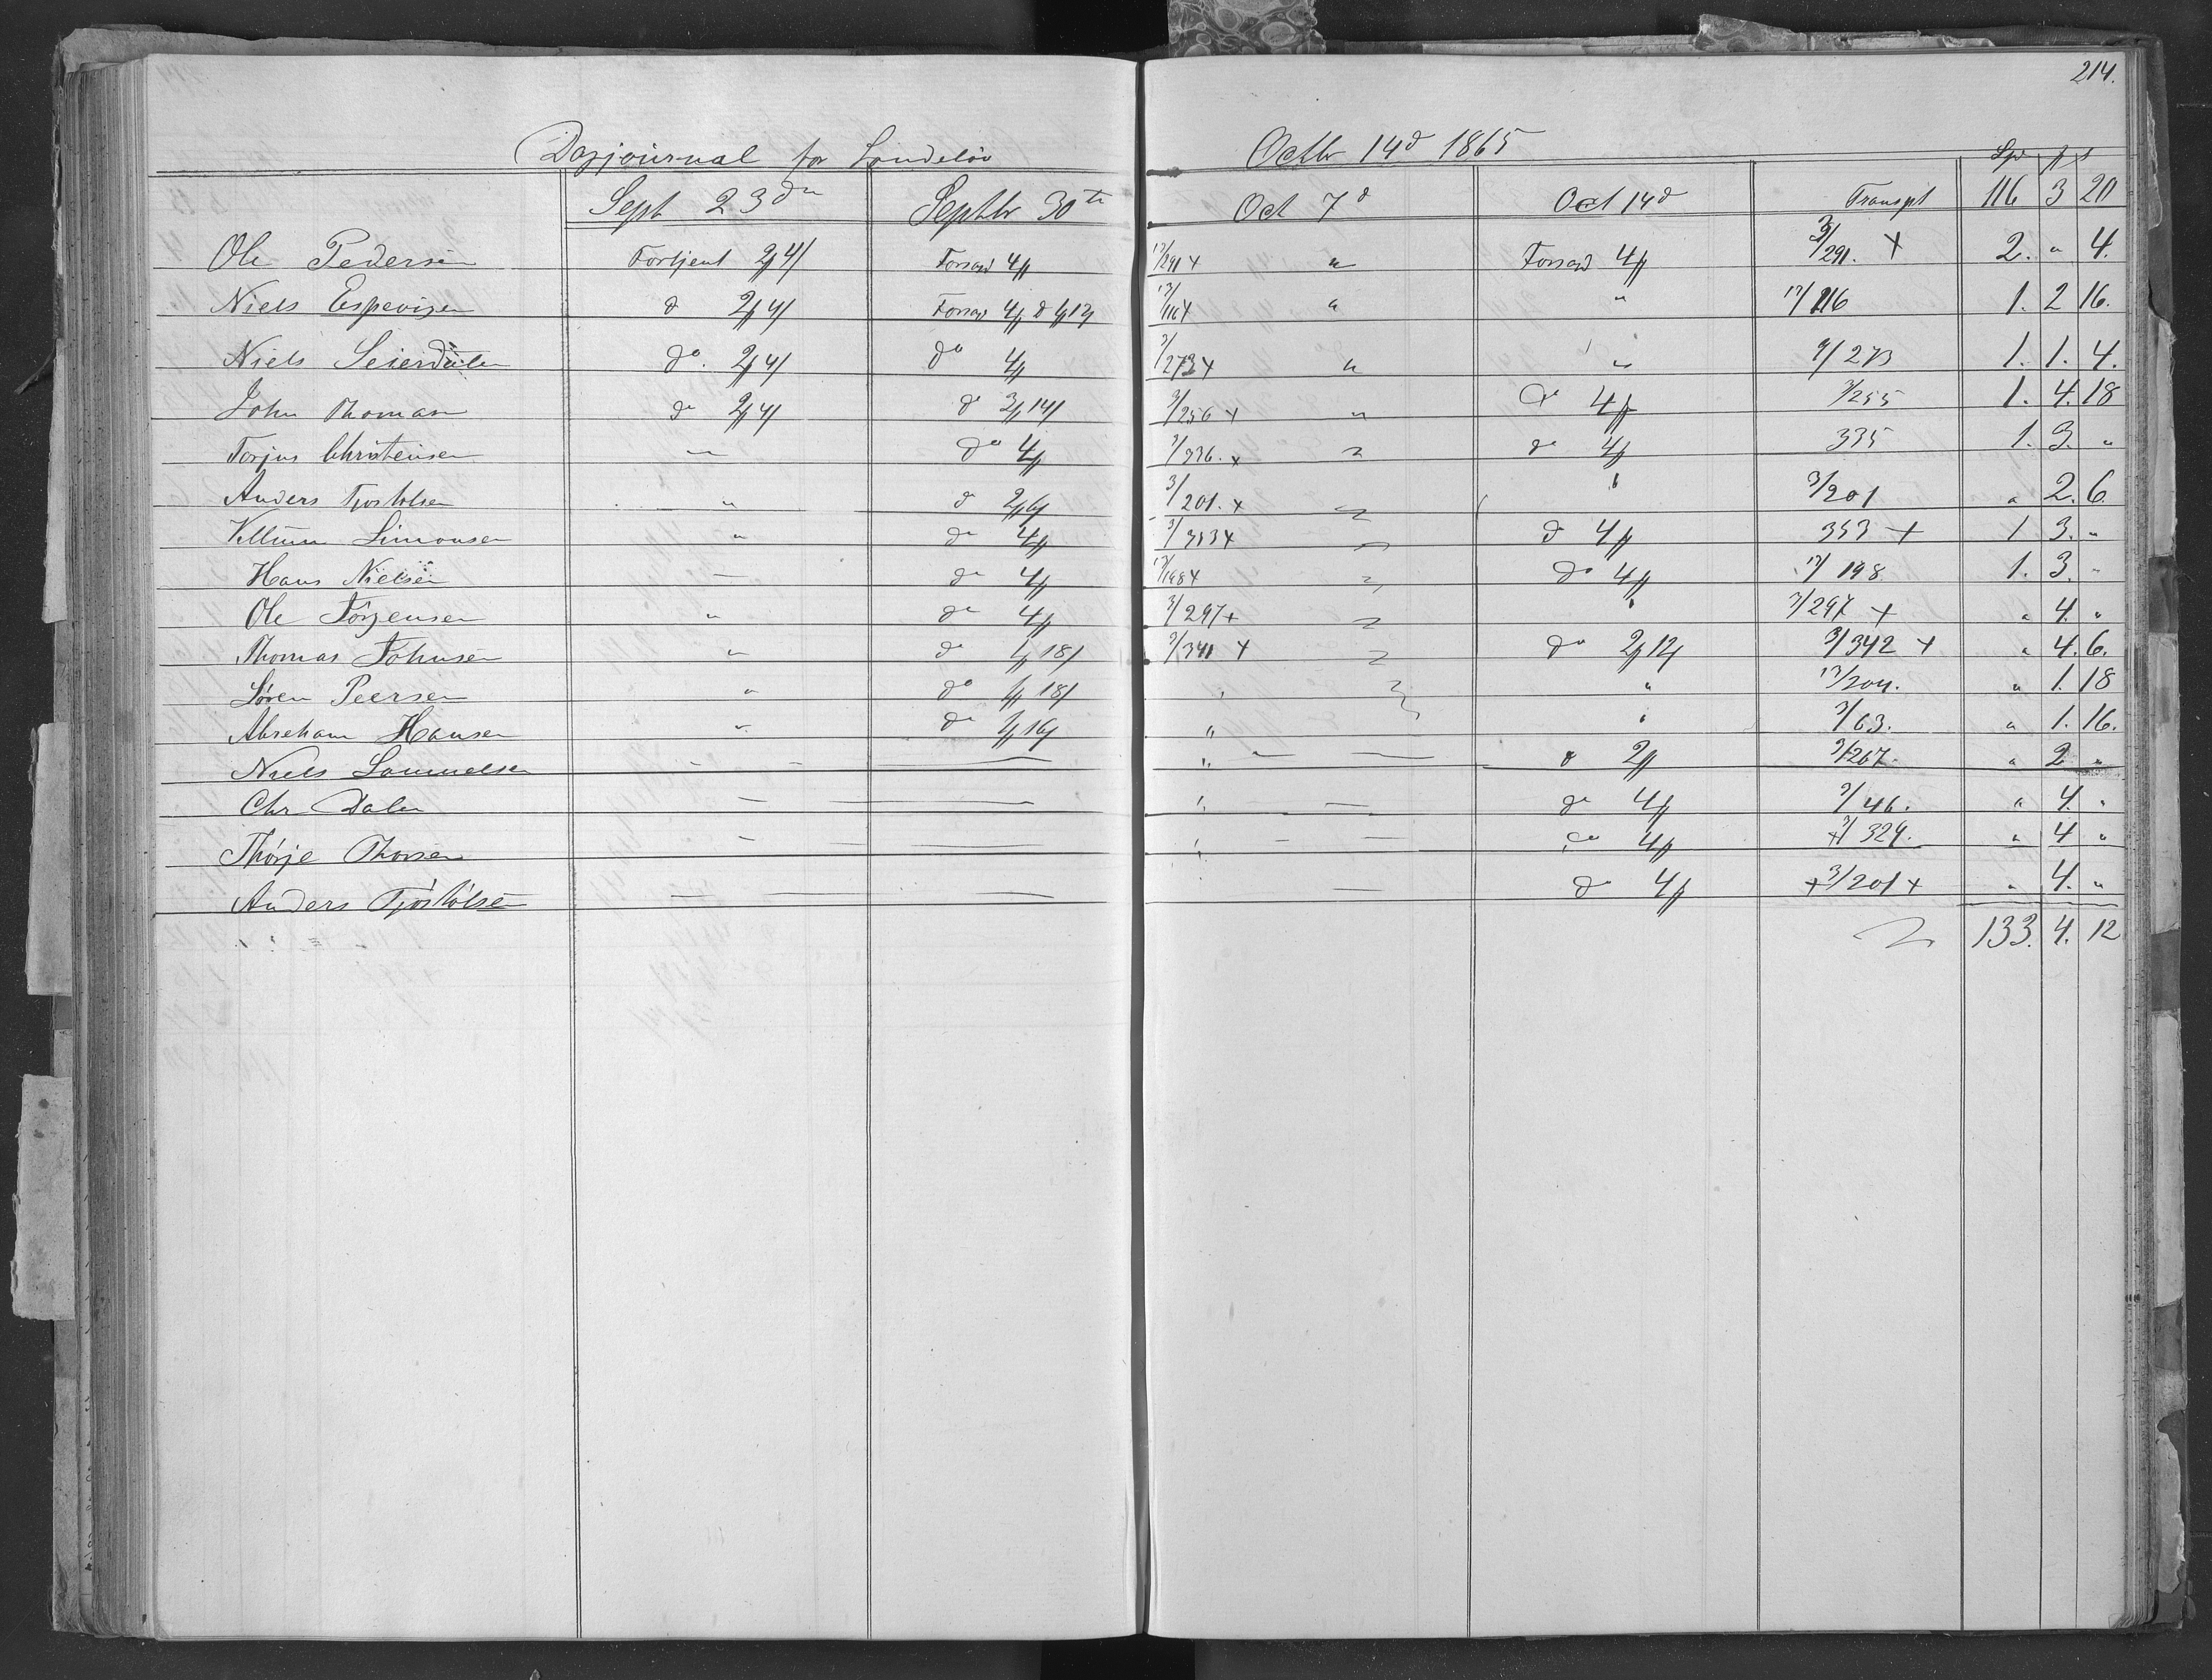 214.
Dagjournal for Sondeløv Octbr 14d 1865
Spd
Sept 23de Septbr 30te Oct 7d Oct 14d Transpt 116 3 20
Ole Pedersen Fortjent 2 4 4 17/291 x " 4 3/291. x 2. " 4.
Niels Espevigen d 2 4 4 d 1 12 17/116 x " " 17/116 1. 2 16.
Niels Seierdalen do. 2 4 do 4 3/273 x " " 3/273 1. 1. 4.
John Thomasen do 2 4 do 3 14 " do 4 3/255 1. 4. 18
Torjus Christensen " do 4 " do 4 335 1. 3. "
Anders Tjostolsen " d 2 6 3/201. x " " 3/201 " 2. 6.
Simonsen " do 4 3/353 x " d 4 353 x 1 3. "
Hans Nielsen — do 4 17/198 x " do 4 17/198 1. 3. "
Ole Jörgensen " do 4 3/297 x " " 3/297 x " 4. "
Thomas Johnsen " do 1 18 3/341 x " do 2 12 3/342 x " 4. 6.
Sören Peersen " do 1 18 " " 17/204. " 1. 18
Abraham Hansen " do 1 16 " " 3/63. " 1. 16.
Niels Samuelsen — — — " — — d 2 3/267. " 2 "
Chr Dalen — — " — do 4 3/46. " 4. "
Thorsen — — " — — do 4 x 3/329. " 4 "
Anders Tjöstölsen — — — — do 4 x 3/201 x " 4. "
133. 4. 12